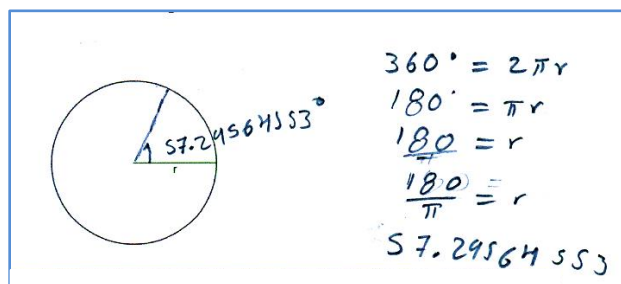 57.29564553°
r
360° = 2πr
180° = πr
180/π = r
180/π = r
57.29564553